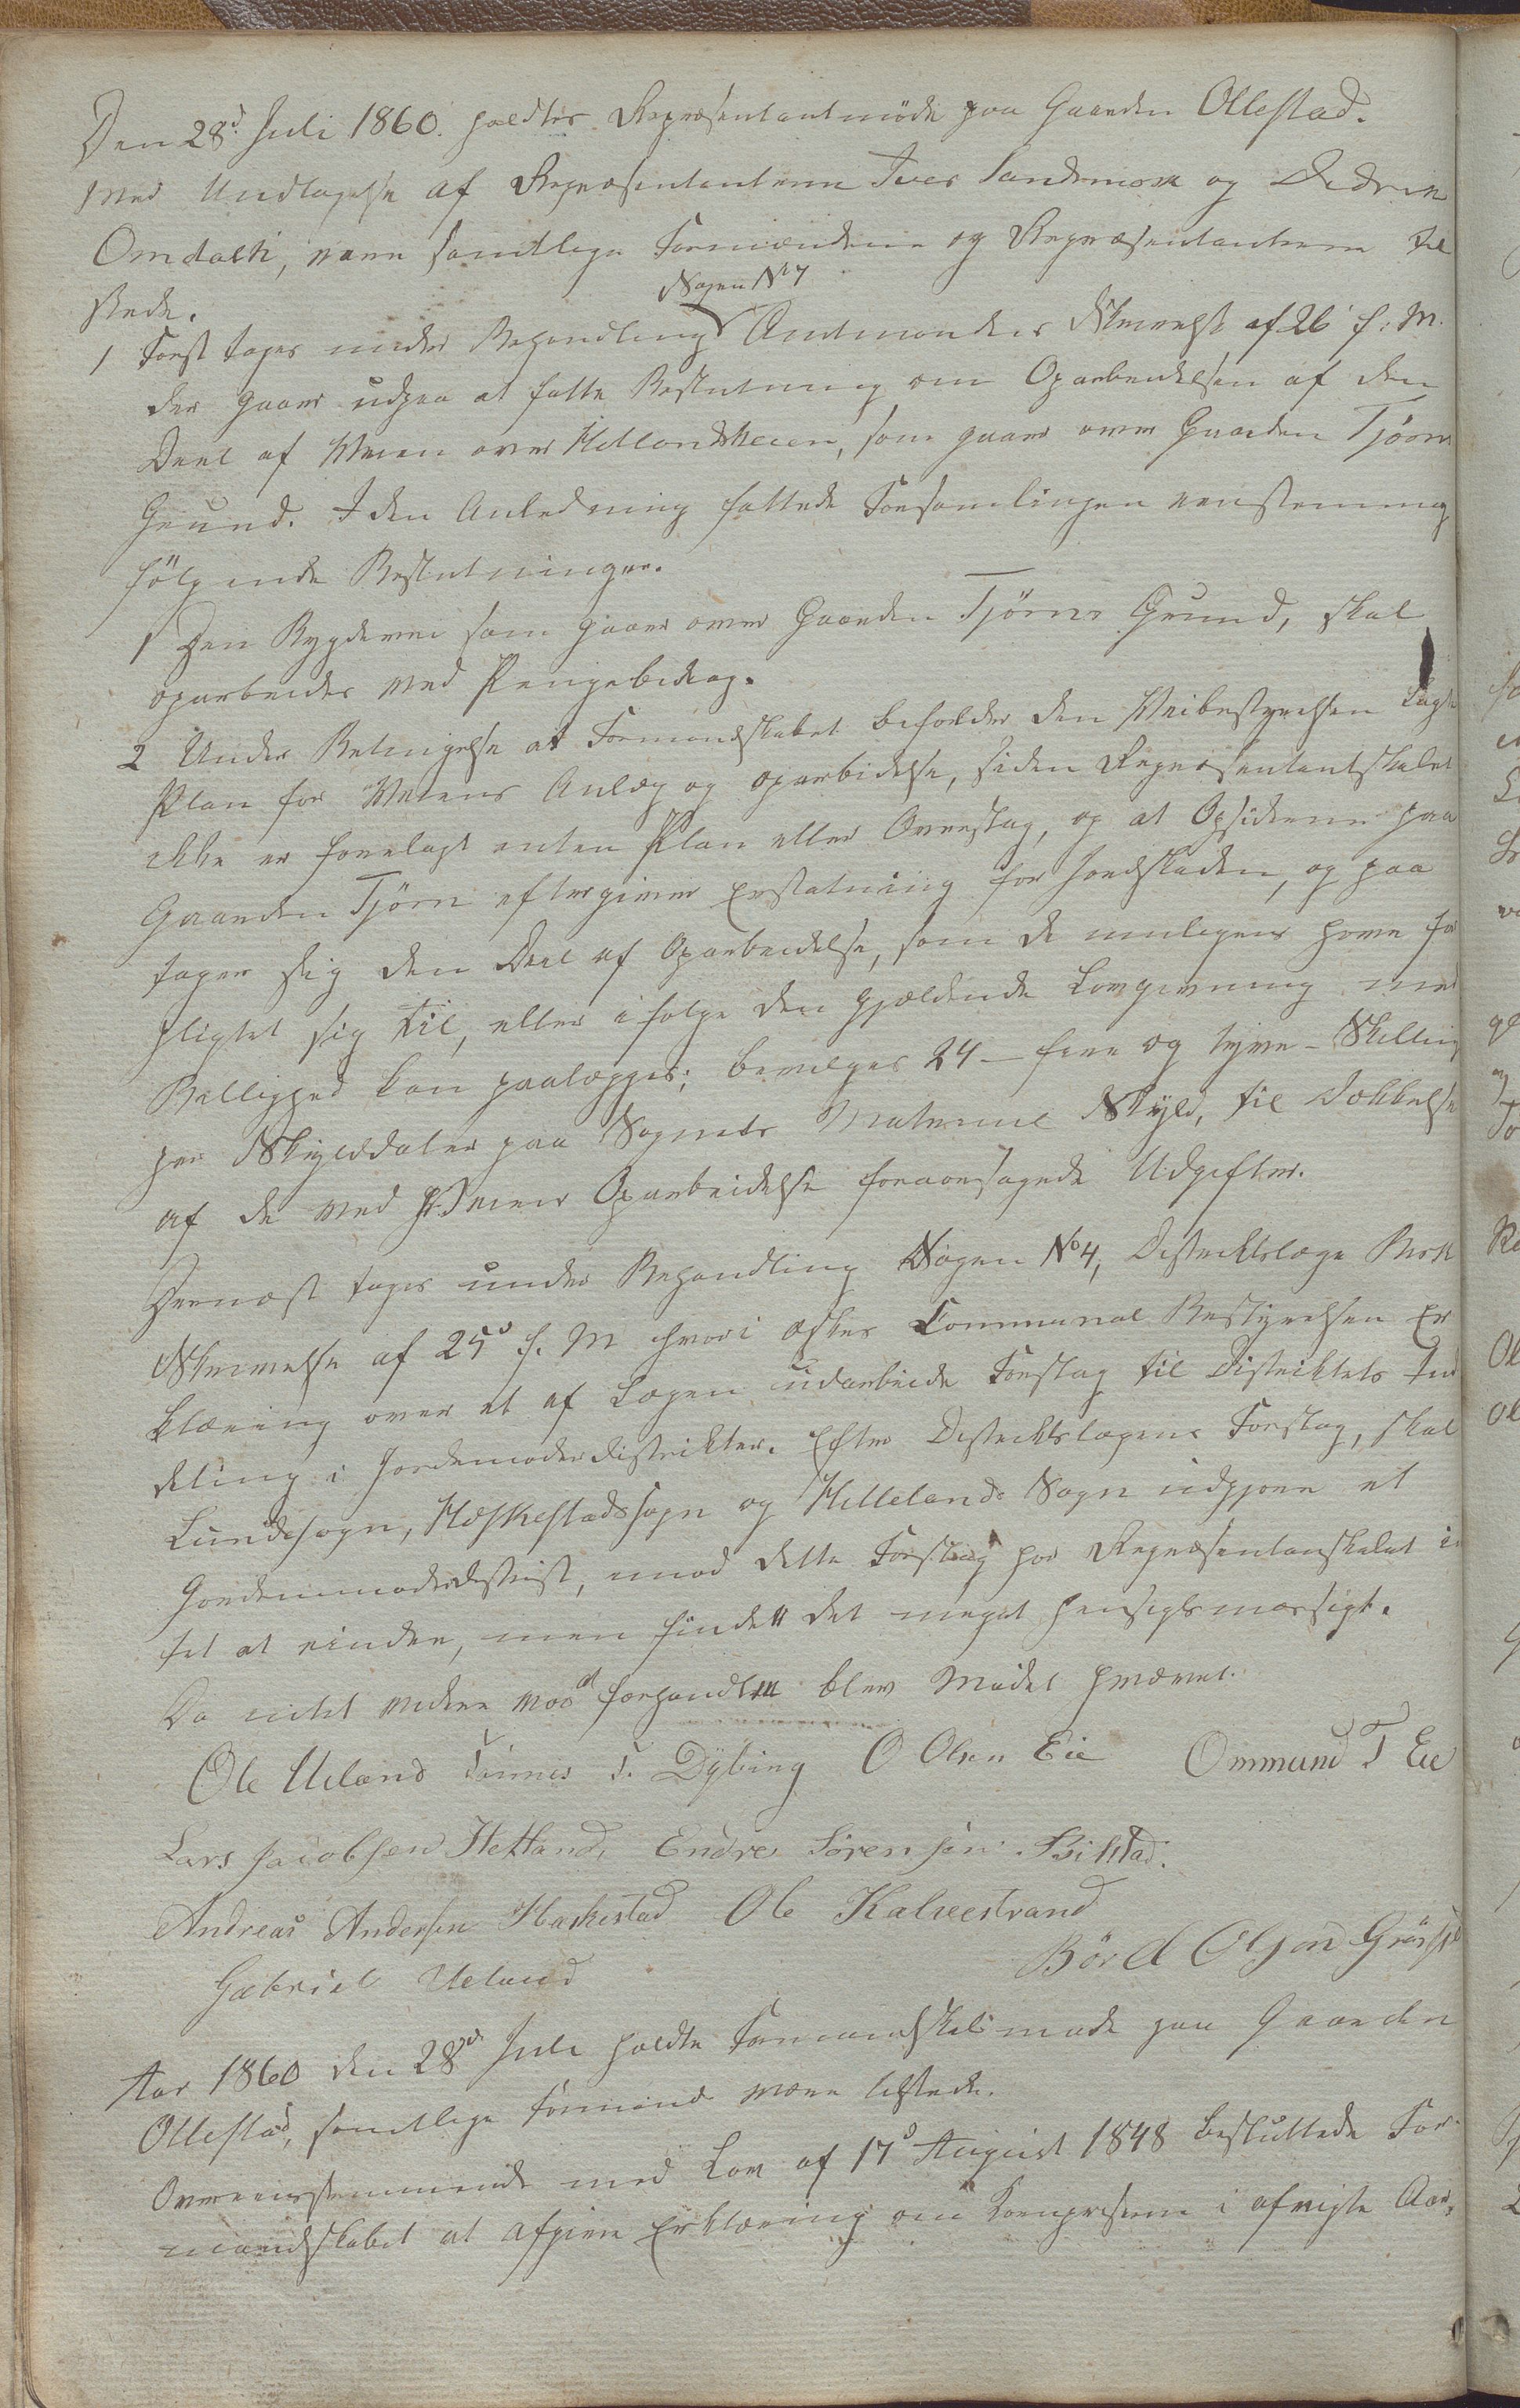 Den 28d. Juli 1860. holdtes Repræsentantmöde paa Gaarden Ollestad.
Med Undtagelse af Repræsentanterne Iver Sandsmork og Dedrik
Omdahl, vare samtlige Formændene og Repræsentanterne til
stede.
Sagen No 7
1 Först toges under Behandling Amtmandens Skrivelse af 26 f: M.
der gaaer udpaa at fatte Beslutning om Oparbeidelsen af den
Deel af Veien over Hellandsheien, som gaaer over Gaarden Tjörns
Grund. I den Anledning fattede Forsamlingen eenstemmig
fölgende Beslutninger.
1 Den Bygdevei som gaaer over Gaarden Tjörns Grund, skal
oparbeides med Pengebidrag.
2 Under Betingelse at Formandskabet beholder den Veibestyrelsen lagte
Plan for Veiens Anlæg og oparbidelse, siden Repræsentantskabet
ikke er forelagt enten Plan eller Overslag, og at Opsidderne paa
Gaarden Tjörn eftergiver Erstatning for Jordskaden, og paa
tager sig den Deel af Oparbeidelse, som de muligens have for
pligtet sig til, eller ifölge den gjældende Lovgivning med
Billighed kan paalægges; bevilges 24 - fire og tyve - Skilling
per Skylddaler paa Sognets Matricul Skyld, til Dækkelse
af de med Veiens Oparbeidelse foraarsagede Udgifter.
Dernæst toges under Behandling Sagen No 4, Distriktslæge
Skrivelse af 25d f. M hvori æskes Communal Bestyrelsen Er
klæring over et af Lægen udarbeide Forslag til Distriktets Ind
deling i Jordemoderdistrikter. Efter Distriktslægens Forslag, skal
Lundesogn, Heskestadssogn og Hellelands Sogn udgjöre et
Jordemoderdistrikt, mod dette Forslag har Repræsentanskabet in
tet at erindre, men findet det meget hensigtsmæssigt.
Da intet videre var at forhandle blev Mödet hævet.
Ole Ueland Tönnes T. Dÿbing O Olsen Eie Ommund T Eie
Lars Jacobsen Hetland, Endre Sörensen Bilstad.
Andreas Andersen Haskestad Ole Kalveestrand
Gabriel Ueland Börd Olsen
Aar 1860 den 28d Juli holdte Formandskabsmöde paa Gaarden
Ollestad, samtlige Formænd vare tilstede.
Overeensstemmende med Lov af 17d August 1848 besluttede For-
mandskabet at afgive Erklæring om Kornpriserne i afvigte Aar,